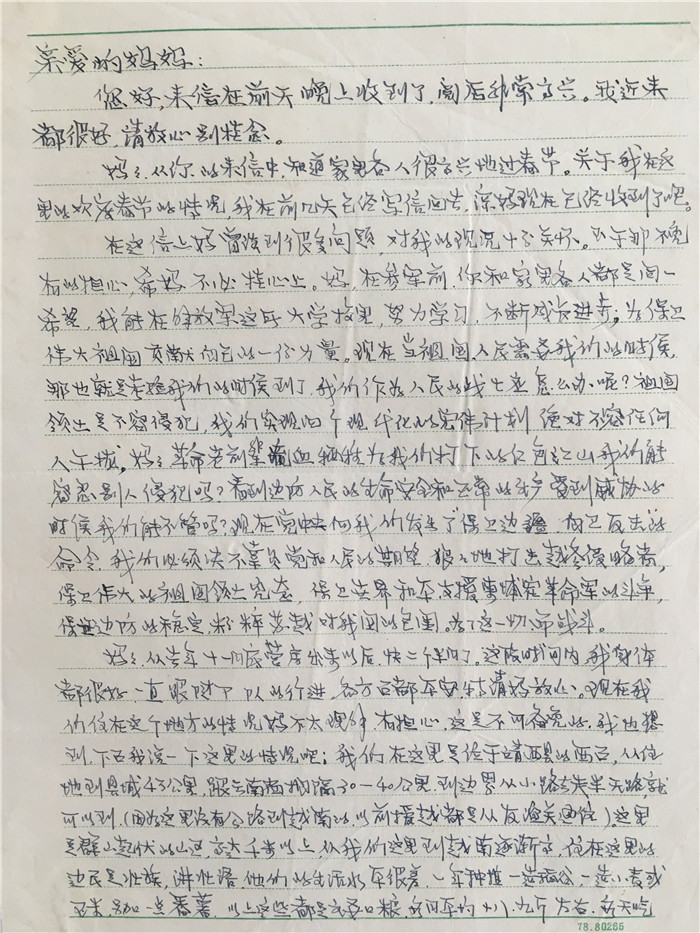 亲爱的妈妈：
您好，来信在前天晚上收到了，阅后非常高兴。我近来
都很好，请放心别挂念。
妈：从你的来信中，知道家里各人很高兴地过春节。关于我在这
里的欢度春节的情况，我在前几天已经写信回去，谅妈现在已经收到了吧。
在这信上妈曾谈到很多问题，对我的现况十分关怀。
有的担心，希妈不必挂心上。妈，在参军前，你和家里各人都是同一
希望，我能在解放军这所大学校里，努力学习，不断成长进步，为保卫
伟大祖国贡献自己的一份力量。现在当祖国、人民需要我们的时候，
那也就是考验我们的时候到了，我们作为人民的战士应怎么办呢？祖国
领土是不容侵犯，我们实现四个现代化的宏伟计划绝对不容任何
人干扰。妈：革命老前辈流血牺牲为我们打下的红色江山我们能
容忍别人侵犯吗？看到边防人民的生命安全和正常的生产受到威协的
时候我们能不管吗？现在党中央向我们发出了“保卫边疆，自卫反击”的
命令，我们必须决不辜负党和人民的期望，狠狠地打击越寇侵略者，
保卫伟大的祖国领土完整，保卫世界和平支援柬埔寨革命军的斗争，
保卫边防的稳定，粉粹苏越对我国的包围。为了这一切而战斗。
妈：从去年十一月底营房出来以后，快二个半月了。这段时间内，我身体
都很好，一直跟随了队的行进，各方面都平安，特请妈放心。现在我
们住在这个地方的情况妈不太理解，有担心，这是不可备免的，我也想
到，下面我谈一下这里的情况吧：我们在这里是位于靖西县的西面，从住
地到县城43公里，跟云南面相隔30—40公里，到边界从小路走半天路就
可以到，（因为这里没有公路到越南的，以前援越都是从友谊关通信）。这里
是群山起伏的山区，高达千米以上，从我们这里到越南逐渐高，住在这里的
边民是壮族，讲壮语，他们的生活水平很差，一年种植一造稻谷，一造小麦或
玉米，另加一点番薯，以上这些都是主要口粮，每月平均十八、九斤左右，每天吃
78.80265